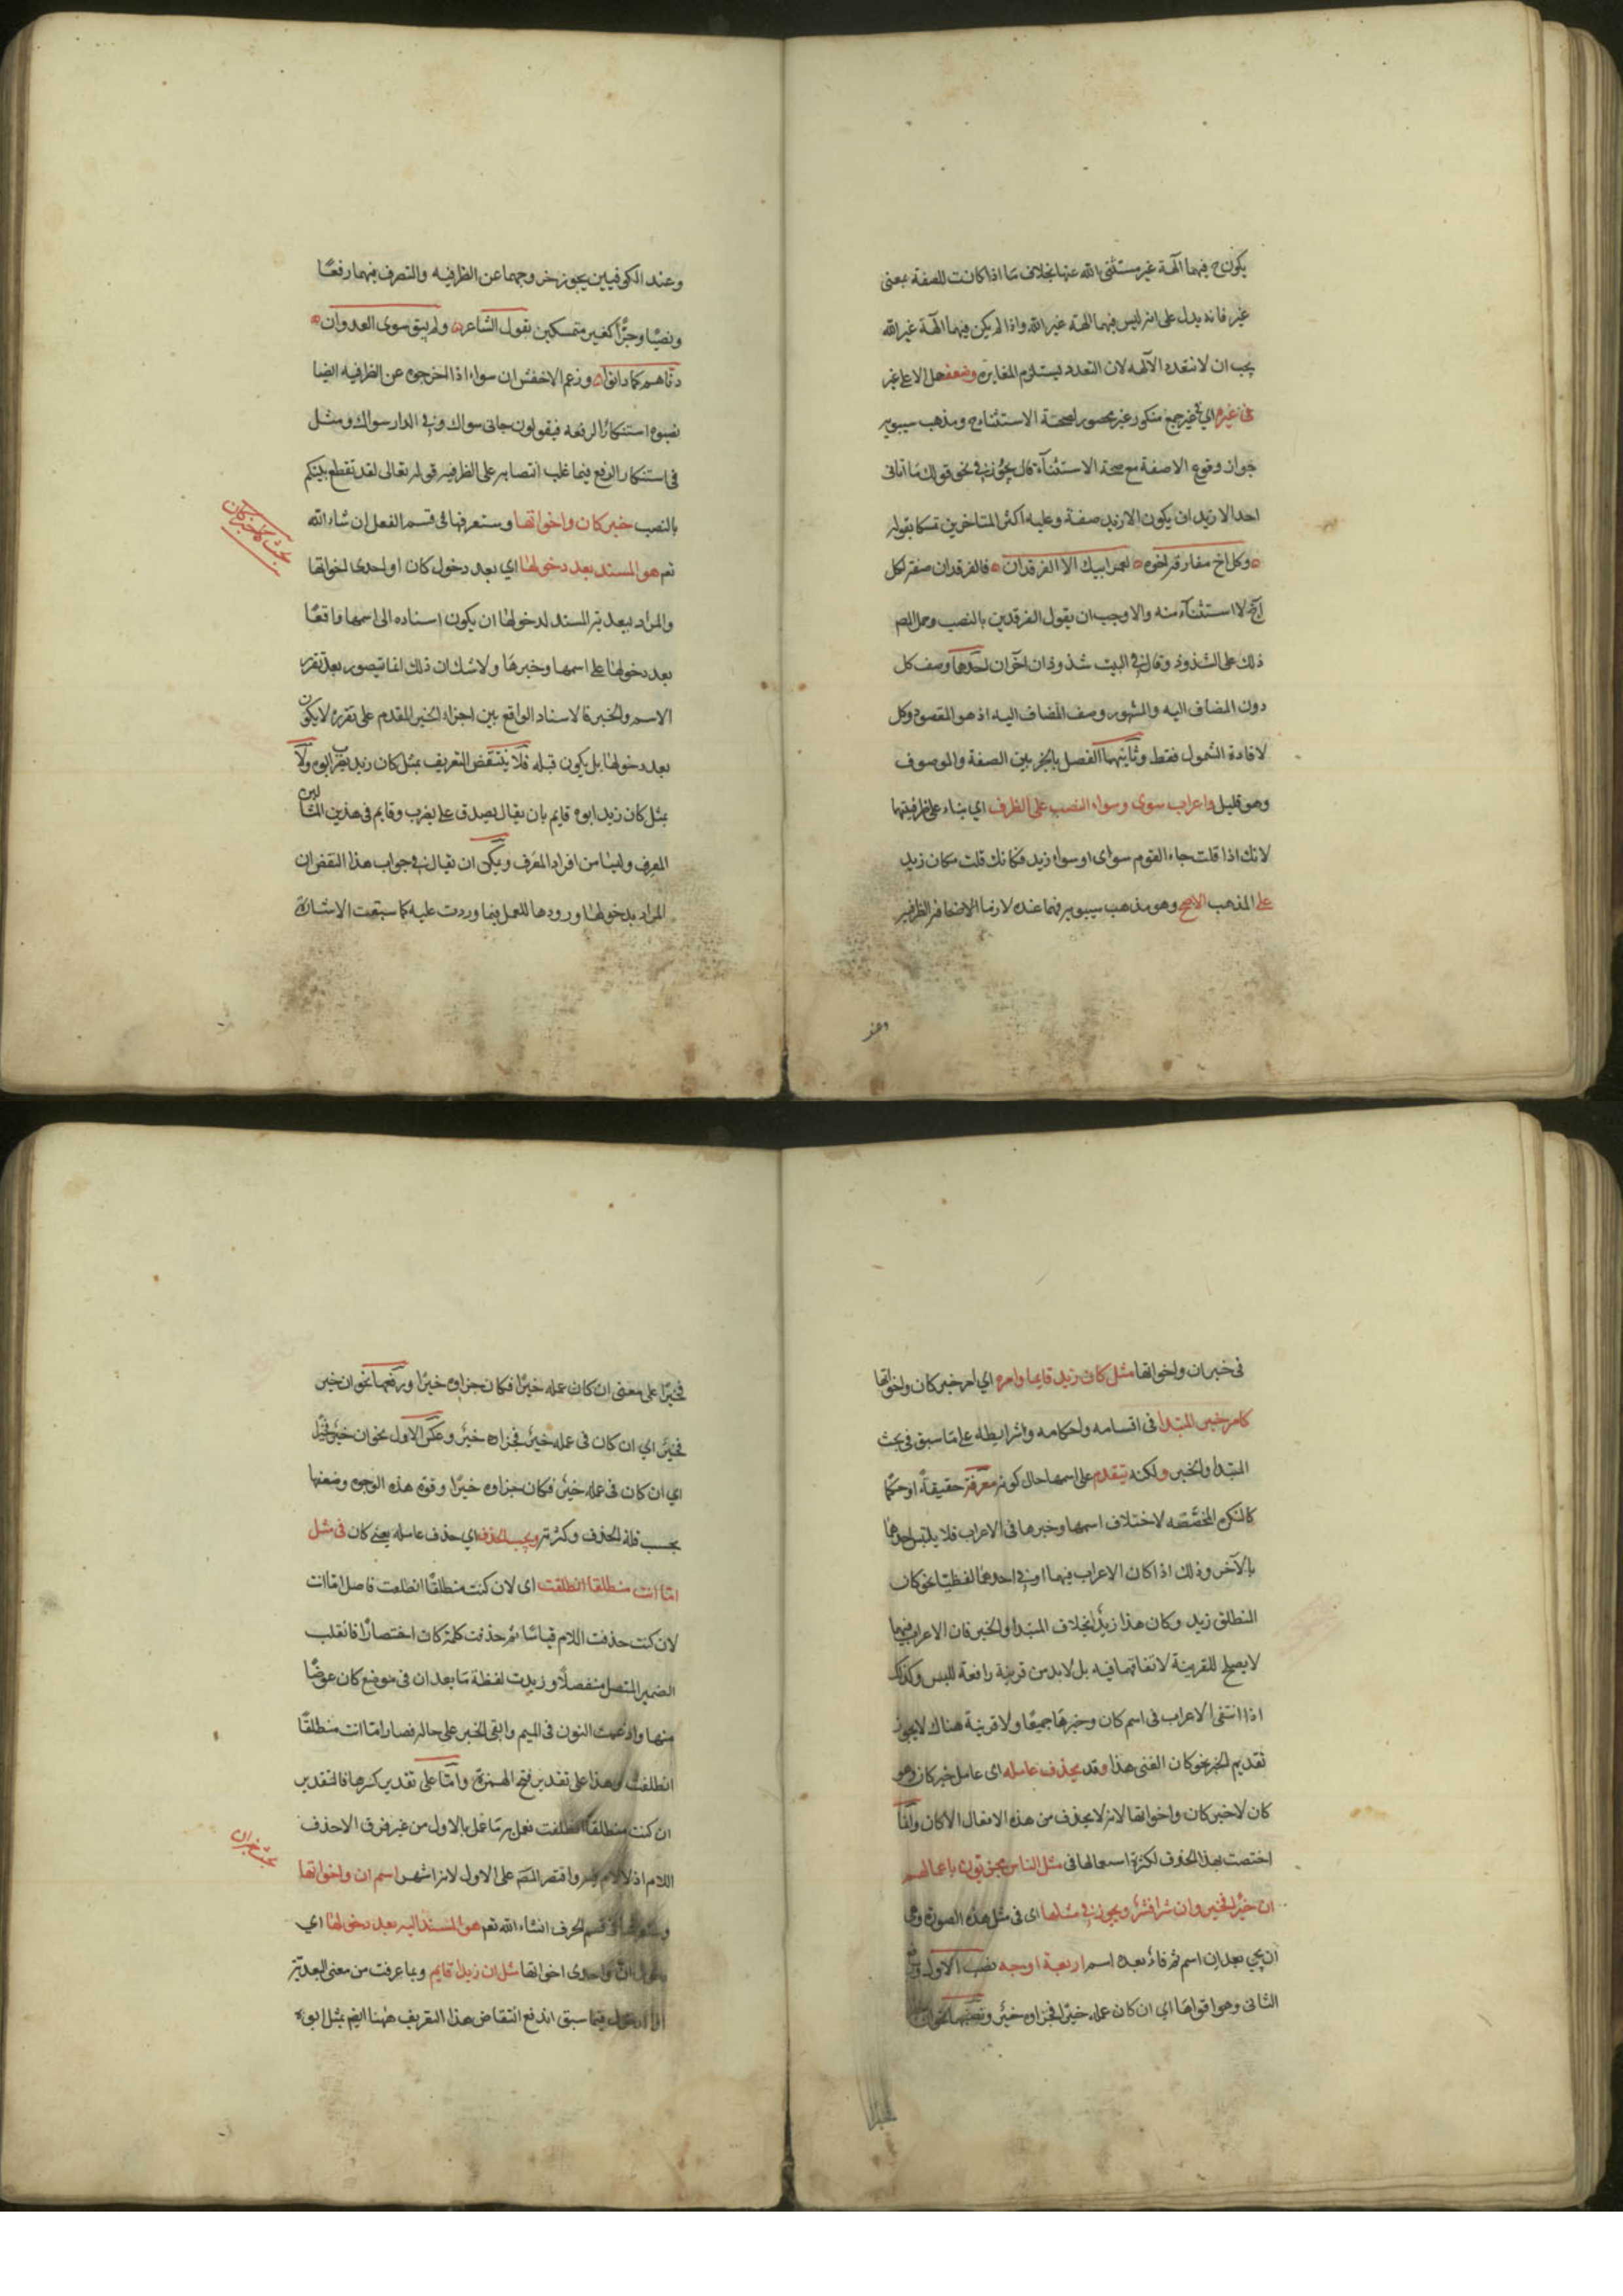 يكون ح فيهما آلهة غير مستثنى الله عنها بخلاف ما اذا كانت للصفة بمعنى
غير فانه يدل على انه ليس فيهما آلهة غير الله واذا لم يكن فيهما آلهة غير الله
يجب ان لا تتعدد الآلهة لان التعدد يستلزم المغايرة وضعف حمل الا على غير
في غيره اي في غير جمع منكور غير محصور لصحة الاستثناء ح ومذهب سيبويه
جواز وقوع الا صفة مع صحة الاستثناء قال يجوز في نحو قولك ما اتاني
احد الا زيد ان يكون الا زيد صفة وعليه اكثر المتاخرين تمسكا بقوله
وكل اخ مفارقه اخوه لعمر ابيك الا الفرقدان فالفرقدان صفة لكل
اخ لا استثناء منه والا وجب ان يقول الفرقدين بالنصب وحمل المص
ذلك على الشذوذ وقال في البيت شذوذان آخران احدها وصف كل
دون المضاف اليه والمشهور وصف المضاف اليه اذ هو المقصود وكل
لافادة الشمول فقط وثانيهما الفصل بالخبر بين الصفة والموصوف
وهو قليل واعراب سوى وسواء النصب على الظرف اي بناء على ظرفيتهما
لانك اذا قلت جاء القوم سوى او سواء زيد فكانك قلت مكان زيد
على المذهب الاصح وهو مذهب سيبويه فهما عنده لازما الظرفية
وعند
وعند الكوفيين يجوز خروجهما عن الظرفيه والتصرف فيهما رفعًا
ونصبًا وجرًّا كغير متمسكين بقول الشاعر ولم يبق سوى العدوان
دناهم كما دانوا وزعم الاخفش ان سواء اذا اخرجوه عن الظرفيه ايضا
نصبوه استنكارًا لرفعه فيقولون جاني سواك وفي الدار سواك ومثل
في استنكار الرفع فيما غلب انتصابه على الظرفيه قوله تعالى لقد تقطع بينكم
بالنصب خبر كان واخواتها وستعرفها في قسم الفعل ان شاء الله
تع هو المسند بعد دخولها اي بعد دخول كان او احدى اخواتها
بحث خبر كان
والمراد ببعدية المسند لدخولها ان يكون اسناده الى اسمها واقعًا
بعد دخولها على اسمها وخبرها ولا شك ان ذلك انما يتصور بعد تقرر
الاسم والخبر فالاسناد الواقع بين اجزاء الخبر المقدم على تقرره لا يكون
بعد دخولها بل يكون قبله فلا ينتقض التعريف بمثل كان زيد يضرب ابوه ولا
بمثل كان زيد ابوه قايم بان يقال يصدق على يضرب وقايم في هذين المثالين
المعرف وليسا من افراد المعرف ويمكن ان يقال في جواب هذا النقض ان
المراد بدخولها ورودها للعمل فيما وردت عليه كما سبقت الاشارة
في خبر ان واخواتها مثل كان زيد قايما وامره اي امر خبر كان واخواتها
كامر خبر المبتدا في اقسامه واحكامه وشرايطه على ما سبق في بحث
المبتدا والخبر ولكنه يتقدم على اسمها حال كونه معرفة حقيقة او حكمًا
كالنكرة المخصصه لاختلاف اسمها وخبرها في الاعراب فلا يلتبس احدهما
بالآخر وذلك اذا كان الاعراب فيهما او في احدهما لفظيًا نحو كان
المنطلق زيد وكان هذا زيدٌ بخلاف المبتدا والخبر فان الاعراب فيهما
لا يصلح للقرينة لاتفاقهما فيه بل لا بد من قرينة رافعة للبس وكذلك
اذا انتفى الاعراب في اسم كان وخبرها جميعًا ولا قرينة هناك لا يجوز
تقديم الخبر نحو كان الفتى هذا وقد يحذف عامله اي عامل خبر كان وهو
كان لا خبر كان واخواتها لانه لا يحذف من هذه الافعال الا كان وانما
اختصت بهذا الحذف لكثرة استعمالها في مثل الناس مجزيون باعمالهم
ان خيرًا فخير وان شرا فشر ويجوز في مثلها اى في مثل هذه الصورة وهي
ان يجي بعد ان اسم ثم فاء بعده اسم اربعة اوجه نصب الاول ورفع
الثاني وهو اقواها اي ان كان عمله خيرًا فجزاوه خير ونصبهما نحو ان
فخيرًا على معنى ان كان عمله خيرًا فكان جزاوه خيرًا ورفعهما نحو ان خير
فخير اي ان كان في عمله خير فجزاوه خير وعكس الاول نحو ان خير فخيرا
اي ان كان في عمله خير فكان جزاوه خيرًا وقوة هذه الوجوه وضعفها
بحسب قلة الحذف وكثرته ويجب الحذف اي حذف عامله يعني كان في مثل
اما انت منطلقا انطلقت اى لان كنت منطلقًا انطلقت فاصل اما انت
لان كنت حذفت اللام قياسًا ثم حذفت كلمة كان اختصارًا فانقلب
الضمير المتصل منفصلًا وزيدت لفظة ما بعد ان في موضع كان عوضًا
منها وادغمت النون في الميم وابقى الخبر على حاله فصار اما انت منطلقًا
انطلقت وهذا على تقدير فتح الهمزة وامّا على تقدير كسرها فالتقدير
ان كنت منطلقًا انطلقت فعمل به ما عمل بالاول من غير فرق الا حذف
اللام اذ لا لام فيه واقتصر المص على الاول لانه اشهر اسم ان واخواتها
بحث اسم ان
وستعرفها في قسم الحرف انشاء الله تع هو المسند اليه بعد دخولها اي
دخول ان او احدى اخواتها مثل ان زيدا قايم وبما عرفت من معنى البعدية
فيما سبق اندفع انتقاض هذا التعريف ههنا ايض بمثل ابوه